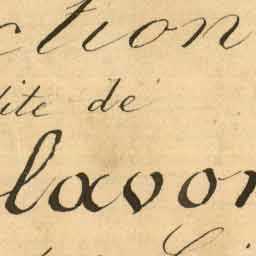 ction
dite de
lavon